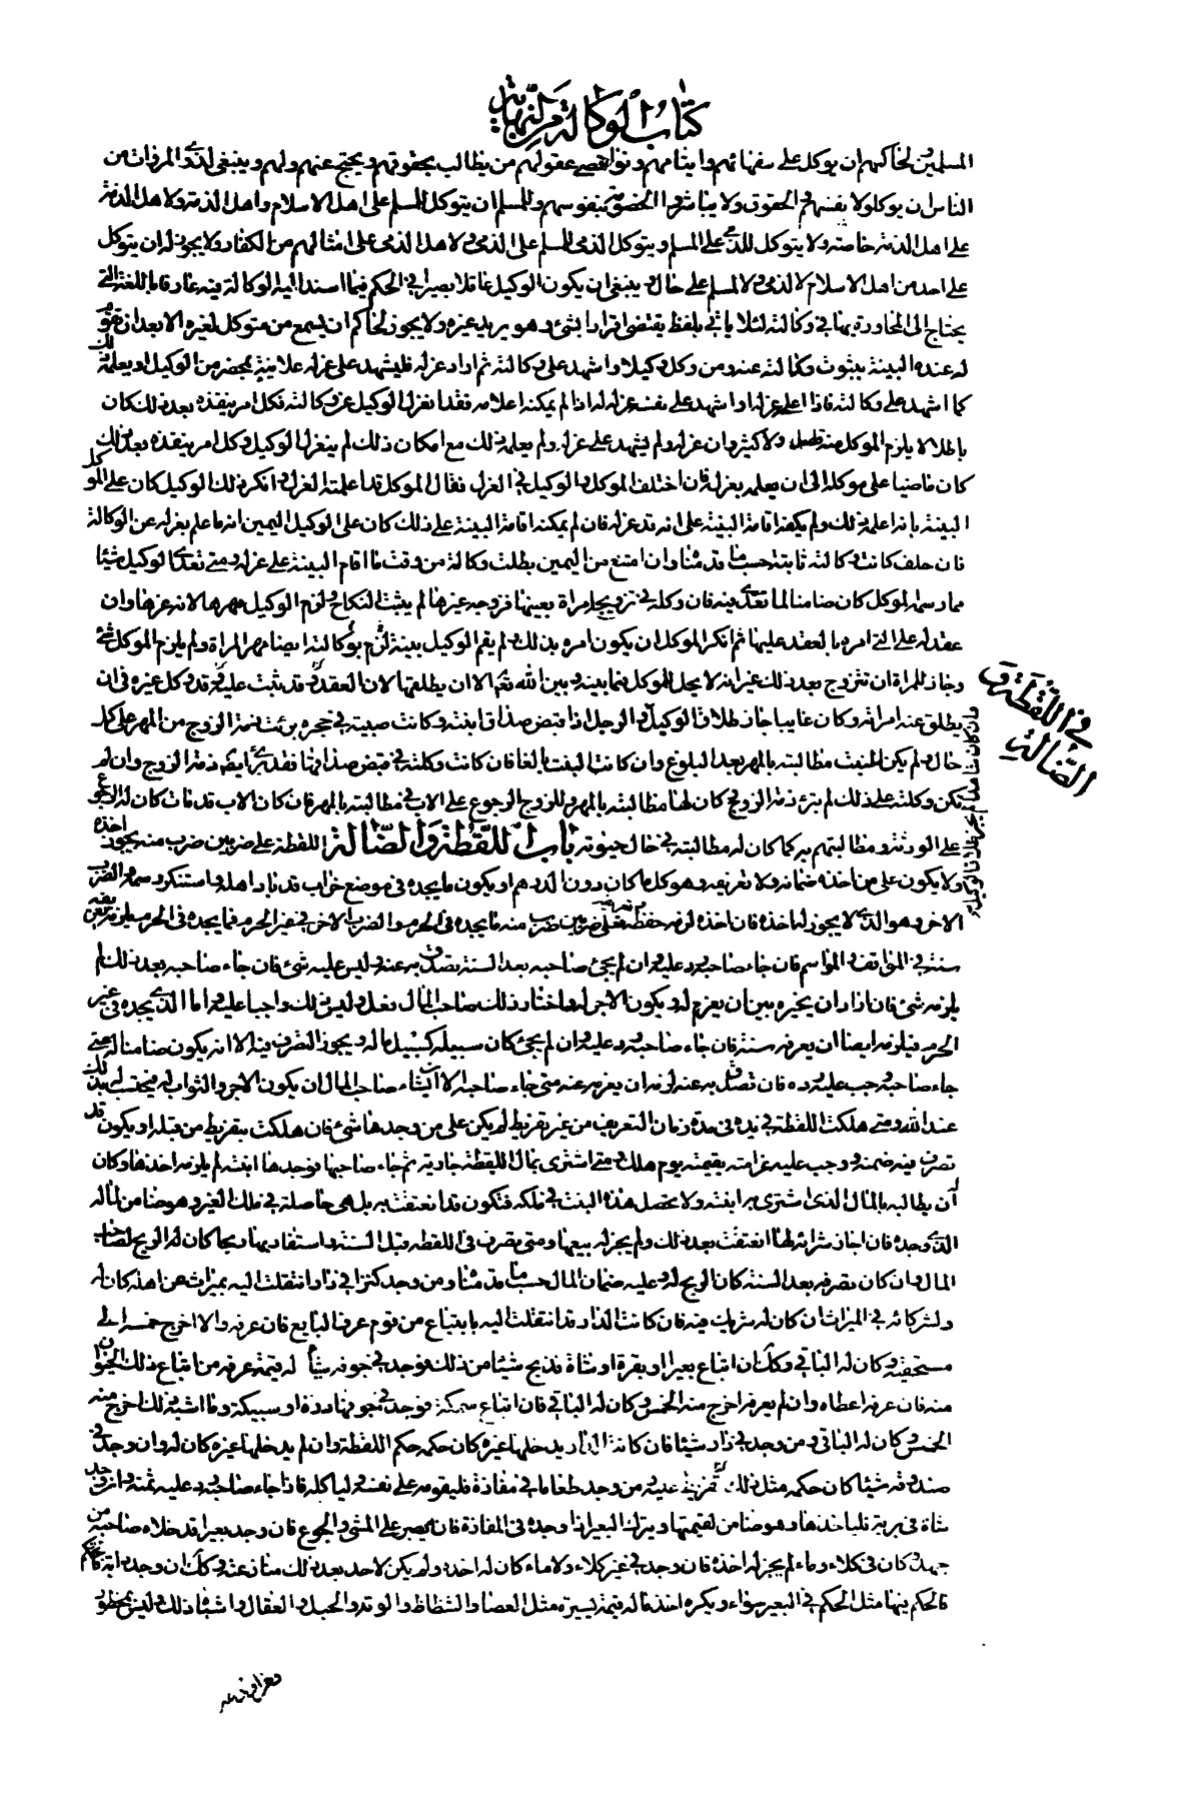 كتاب الوكالة من النهاية
المسلمين لحاكمهم ان يوكل على سفهائهم وايتامهم ونواقصى عقولهم من يطالب بحقوقهم ويحتج عنهم ولهم وينبغى لذوى المروات من
الناس ان يوكلوا لانفسهم فى الحقوق ولا يباشروا الخصومة بنفوسهم وللمسلم ان يتوكل للمسلم على اهل الاسلام واهل الذمة ولاهل الذمة
على اهل الذمة خاصة ولا يتوكل للذمى على المسلم ويتوكل الذمى للمسلم على الذمى ولاهل الذمى على امثالهم من الكفار ولا يجوز له ان يتوكل
على احد من اهل الاسلام لا لذمى ولا لمسلم على حال وينبغى ان يكون الوكيل عاقلا بصيرا فى الحكم فيما اسند اليه الوكالة فيه عارفا باللغة التى
يحتاج الى المحاورة بها فى وكالته لئلا ياتى بلفظ يقتضى اقرارا بشئ وهو يريد غيره ولا يجوز لحاكم ان يسمع من متوكل لغيره الا بعد ان تقوم
له عنده البينة بثبوت وكالته عنه ومن وكل وكيلا واشهد على وكالته ثم اراد عزله فليشهد على عزله علانية بمحضر من الوكيل او يعلمه ذلك
كما اشهد على وكالته فاذا اعلمه عزله او اشهد على نفسه عزله له اذا لم يمكنه اعلامه فقد انعزل الوكيل عن وكالته فكل امر ينفذه بعد ذلك كان
باطلا لا يلزم الموكل منه قليل ولا كثير وان عزله ولم يشهد على عزله ولم يعلمه ذلك مع امكان ذلك لم ينعزل الوكيل وكل امر ينفذه بعد ذلك
كان ماضيا على موكله الى ان يعلمه بعزله فان اختلف الموكل والوكيل فى العزل فقال الموكل قد اعلمته العزل وانكر ذلك الوكيل كان على الموكل
البينة بانه اعلمه ذلك ولم يمكنه اقامة البينة على انه قد عزله فان لم يمكنه اقامة البينة على ذلك كان على الوكيل اليمين انه ما علم بعزله عن الوكالة
فان حلف كانت وكالته ثابتة حسب ما قدمناه وان امتنع من اليمين بطلت وكالته من وقت ما اقام البينة على عزله ومتى تعدى الوكيل شيئا
مما رسمه الموكل كان ضامنا لما تعدى فيه فان وكله فى تزويج امراة بعينها فزوجه غيرها لم يثبت النكاح ولزم الوكيل مهرها لانه غرها وان
عقد له على التى امره بالعقد عليها ثم انكر الموكل ان يكون امره بذلك ولم يقم الوكيل بينة لزم بوكالته ايضا مهر المراة ولم يلزم الموكل شئ
وجاز للمراة ان تتزوج بعد ذلك غير انه لا يحل للموكل فيما بينه وبين الله تعالى الا ان يطلقها لان العقد قد ثبت عليه ومتى وكل غيره فى ان
يطلق عنه امراته وكان غايبا جاز طلاق الوكيل والرجل اذا قبض صداق ابنته وكانت صبية فى حجره برئت ذمة الزوج من المهر على كل
حال ولم يكن للبنت مطالبته بالمهر بعد البلوغ وان كانت البنت بالغا فان كانت وكلته فى قبض صداقها فقد برئ ايضا ذمة الزوج وان لم
تكن وكلته على ذلك لم يبرئ ذمة الزوج كان لها مطالبته بالمهر وللزوج الرجوع على الاب فى مطالبته بالمهر فان كان الاب قد مات كان له الرجوع
على الورثة ومطالبتهم به كما كان له مطالبته فى حال حيوته باب اللقطة والضالة اللقطة على ضربين ضرب منه يجوز اخذه
ولا يكون على من اخذه ضمانه ولا تعريفه وهو كل ما كان دون الدرهم او يكون ما يجده فى موضع خراب قد باد اهله واستنكر رسمه والضرب
الاخر وهو الذى لا يجوز له اخذه فان اخذه لزمه حفظه وتعريفه فهو على ضربين ضرب منه ما يجده فى الحرم والضرب الاخر فى غير الحرم فما يجده فى الحرم يلزمه تعريفه
سنة فى المواقف والمواسم فان جاء صاحبه رد عليه وان لم يجئ صاحبه بعد السنة تصدق به عنه وليس عليه شئ فان جاء صاحبه بعد ذلك لم
يلزمه شئ فان اراد ان يخيره بين ان يغرم له ويكون الاجر له واختار ذلك صاحب المال فعل وليس ذلك واجبا عليه واما الذى يجده فى غير
الحرم فيلزمه ايضا ان يعرفه سنة فان جاء صاحبه رد عليه وان لم يجئ كان سبيله كسبيل ماله ويجوز التصرف فيه الا انه يكون ضامنا له حتى
جاء صاحبه وجب عليه رده فان تصدق به عنه لزمه ان يغرمه عنه متى جاء صاحبه الا ان يشاء صاحب المال ان يكون الاجر والثواب له فيحتسب له بذلك
عند الله ومتى هلكت اللقطة فى يده فى مدة زمان التعريف من غير تفريط لم يكن على من وجدها شئ فان هلكت بتفريط من قبله او يكون قد
تصرف فيه ضمنه ووجب عليه غرامته بقيمته يوم هلك ومتى اشترى بمال اللقطة جارية ثم جاء صاحبها فوجدها ابنته لم يلزمه اخذها وكان
له ان يطالبه بالمال الذى اشترى به ابنته ولا تحصل هذه البنت فى ملكه فتكون قد انعتقت به بل هى حاصلة فى ملك الغير وهو ضامن لماله
الذى وجده فان اجاز شرائه لها انعتقت بعد ذلك ولم يجز له بيعها ومتى تصرف فى اللقطة قبل السنة واستفاد بها ربحا كان له الربح لصاحب
المال وان كان تصرفه بعد السنة كان الربح له وعليه ضمان المال حسب ما قدمناه ومن وجد كنزا فى دار انتقلت اليه بميراث عن اهله كان له
ولشركائه فى الميراث ان كان له شريك فيه فان كانت الدار قد انتقلت اليه بابتياع من قوم عرف البايع فان عرفه والا اخرج خمسه الى
مستحقيه وكان له الباقى وكذلك ان ابتاع بعيرا او بقرة او شاة فذبح شيئا من ذلك فوجد فى جوفه شيئا له قيمة عرفه من ابتاع ذلك الحيوان
منه فان عرفه اعطاه وان لم يعرفه اخرج منه الخمس وكان له الباقى فان ابتاع سمكة فوجد فى جوفها درة او سبيكة وما اشبه ذلك اخرج منه
الخمس وكان له الباقى ومن وجد فى داره شيئا فان كانت الدار يدخلها غيره كان حكمه حكم اللقطة وان لم يدخلها غيره كان له وان وجد فى
صندوقه شيئا كان حكمه مثل ذلك ومن وجد طعاما فى مفازة فليقومه على نفسه ولياكله فاذا جاء صاحبه رد عليه ثمنه وان وجد
شاة فى برية فلياخذها وهو ضامن لقيمتها ويترك البعير اذا وجده فى المفازة فان يصبر على المشى والجوع فان وجد بعيرا قد خلاه صاحبه من
جهد وكان فى كلاء وماء لم يجز له اخذه فان وجد فى غير كلاء ولا ماء كان له اخذه ولم يكن لاحد بعد ذلك منازعته وكذلك ان وجد دابة فالحكم
فالحكم فيها مثل الحكم فى البعير سواء ويكره اخذ ماله قيمة يسيرة مثل العصا والشظاظ والوتد والحبل والعقال واشباه ذلك وليس بمحظور
فى اللقطة و
الضالة